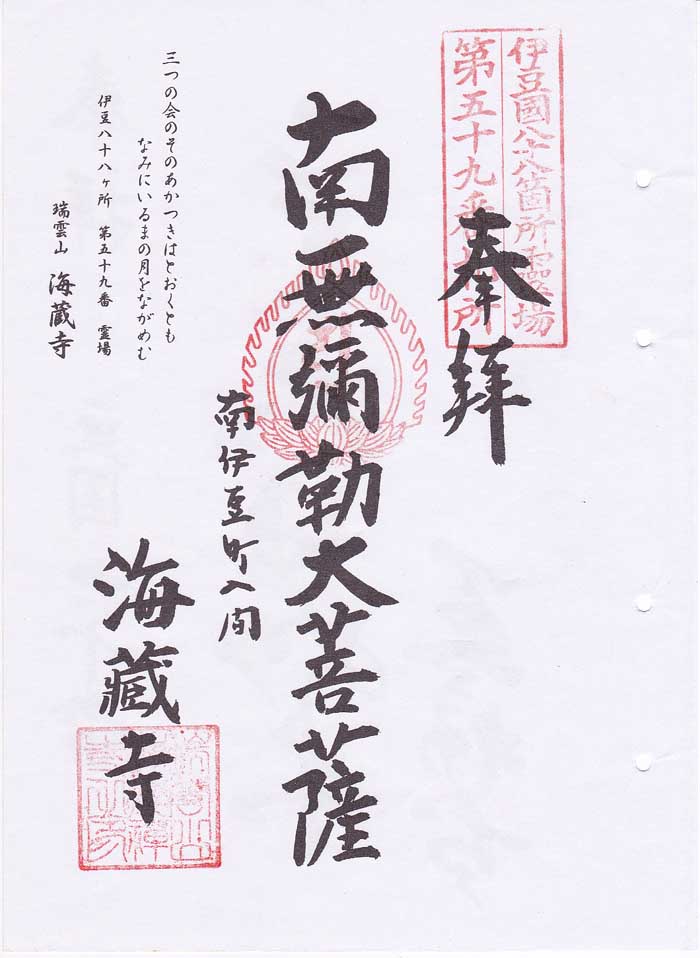 伊豆國八十八箇所靈場
第五十九番札所
奉拝
南無彌勒大菩薩
南伊豆町入間
海藏寺
三つの会のそのあかつきはとおくとも
なみにいるまの月をながめむ
伊豆八十八ヶ所　第五十九番　霊場
瑞雲山　海蔵寺